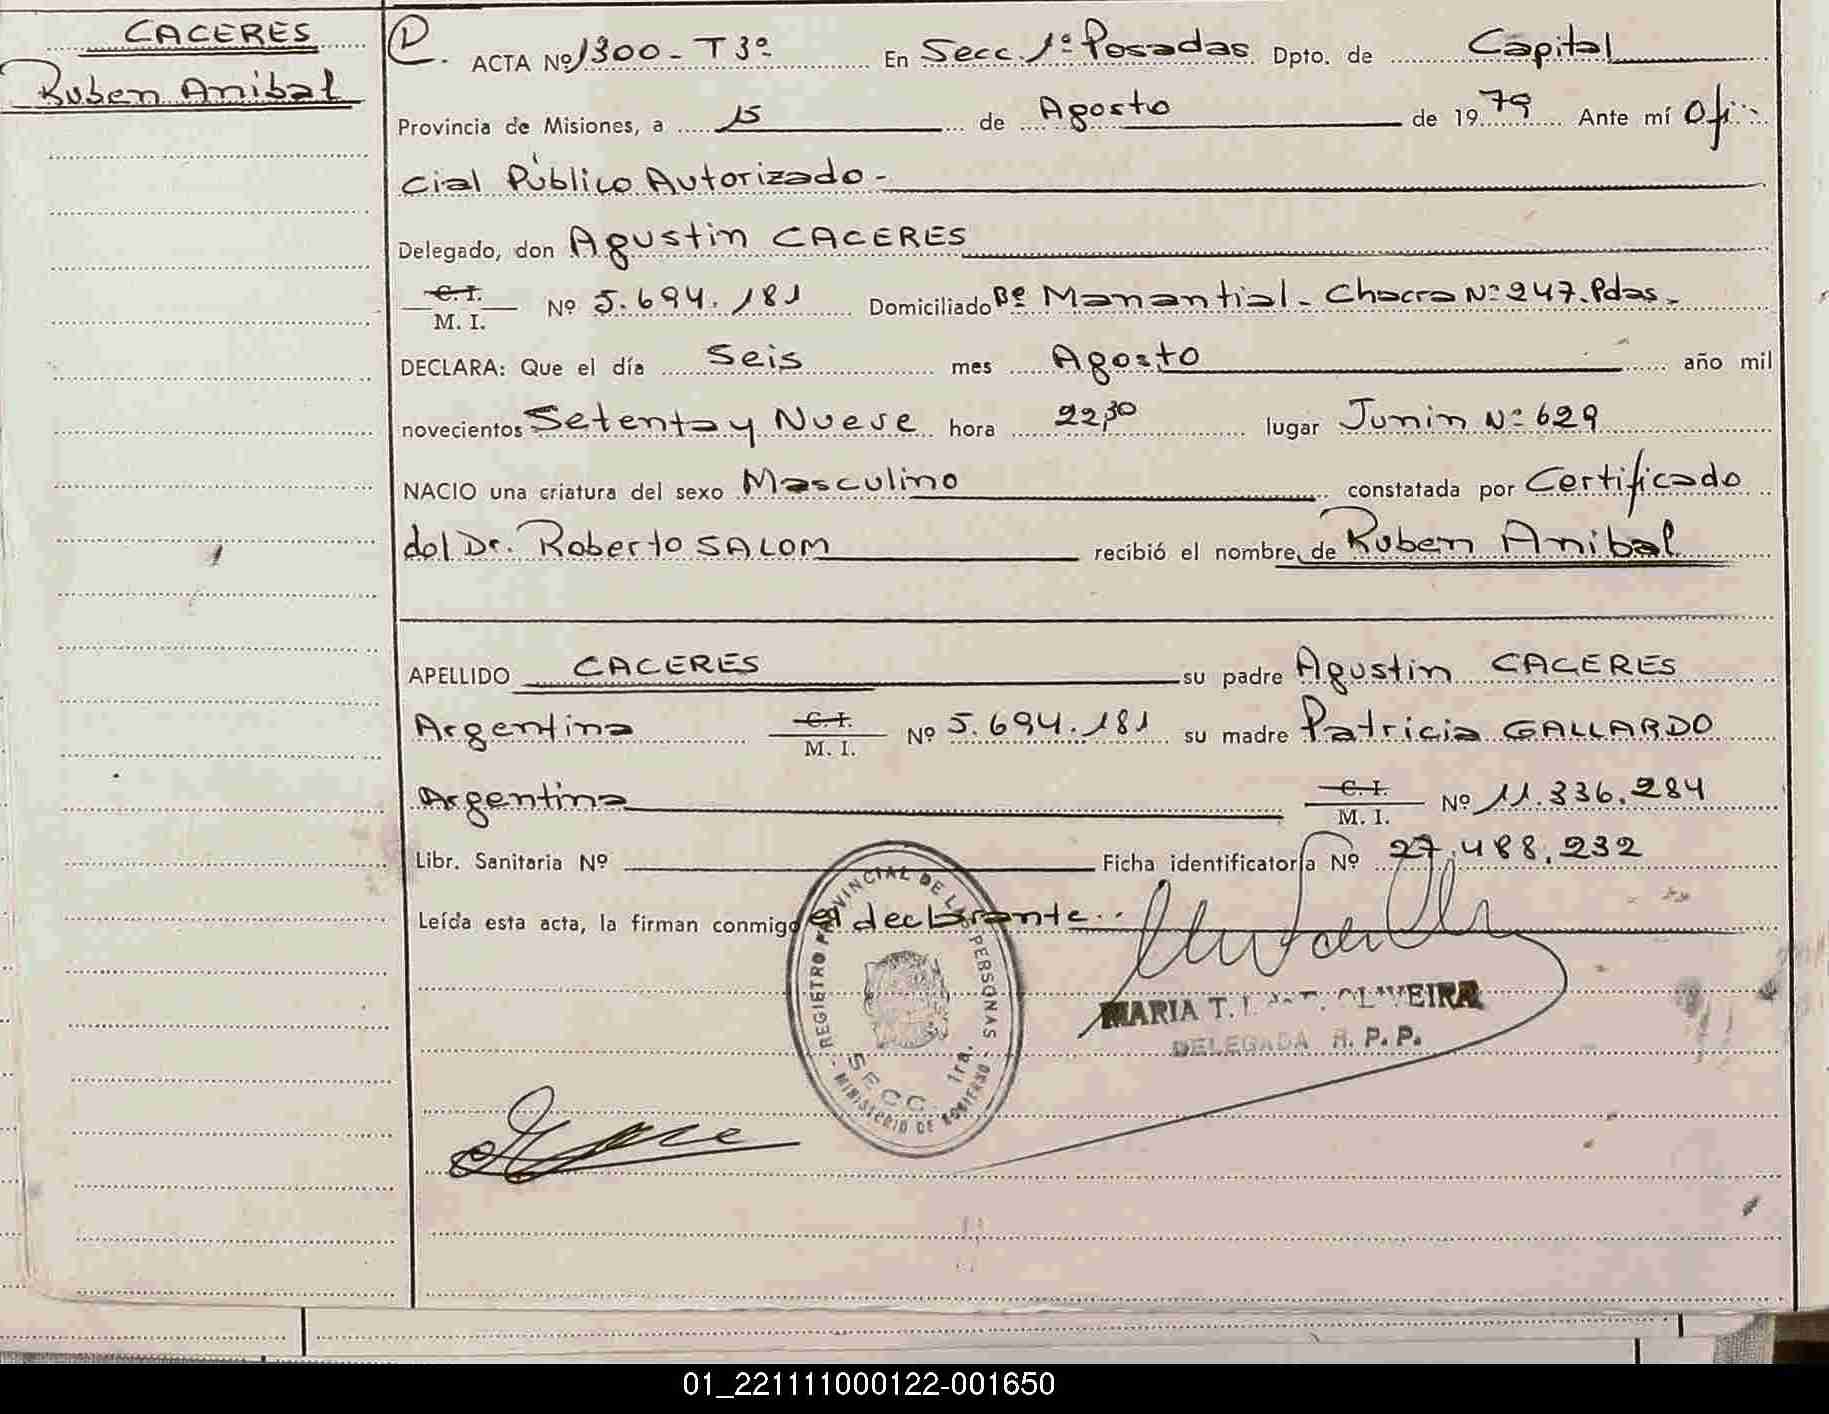 CACERES
Ruben Anibal
D. ACTA Nº 1300 - T 3º En Secc. 1º Posadas Dpto. de Capital
Provincia de Misiones, a 15 de Agosto de 1979 Ante mí Ofi-
cial Público Autorizado -
Delegado, don Agustin CACERES
C.I. / M. I. Nº 5.694.181 Domiciliado Bº Manantial - Chacra Nº 247. Pdas.
DECLARA: Que el día Seis mes Agosto año mil
novecientos Setenta y Nueve hora 22,30 lugar Junin Nº 629
NACIO una criatura del sexo Masculino constatada por Certificado
del Dr. Roberto SALOM recibió el nombre de Ruben Anibal
APELLIDO CACERES su padre Agustin CACERES
Argentina C.I. / M. I. Nº 5.694.181 su madre Patricia GALLARDO
Argentina C.I. / M. I. Nº 11.336.284
Libr. Sanitaria Nº Ficha identificatoria Nº 27.488.232
Leída esta acta, la firman conmigo el declarante..
REGISTRO PROVINCIAL DE LAS PERSONAS
SECC. 1ra.
- MINISTERIO DE GOBIERNO -
MARIA T. OLIVEIRA
DELEGADA R. P. P.
01_221111000122-001650